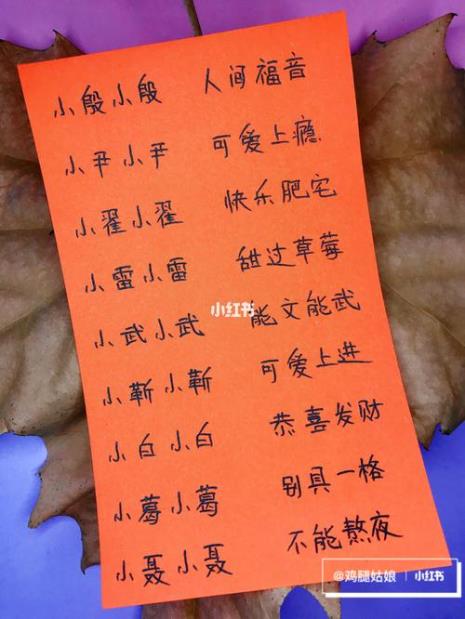 小殷小殷 人间福音
小尹小尹 可爱上瘾
小翟小翟 快乐肥宅
小雷小雷 甜过草莓
小红书
小武小武 能文能武
小靳小靳 可爱上进
小白小白 恭喜发财
小葛小葛 别具一格
小聂小聂 不能熬夜
@鸡腿姑娘 | 小红书